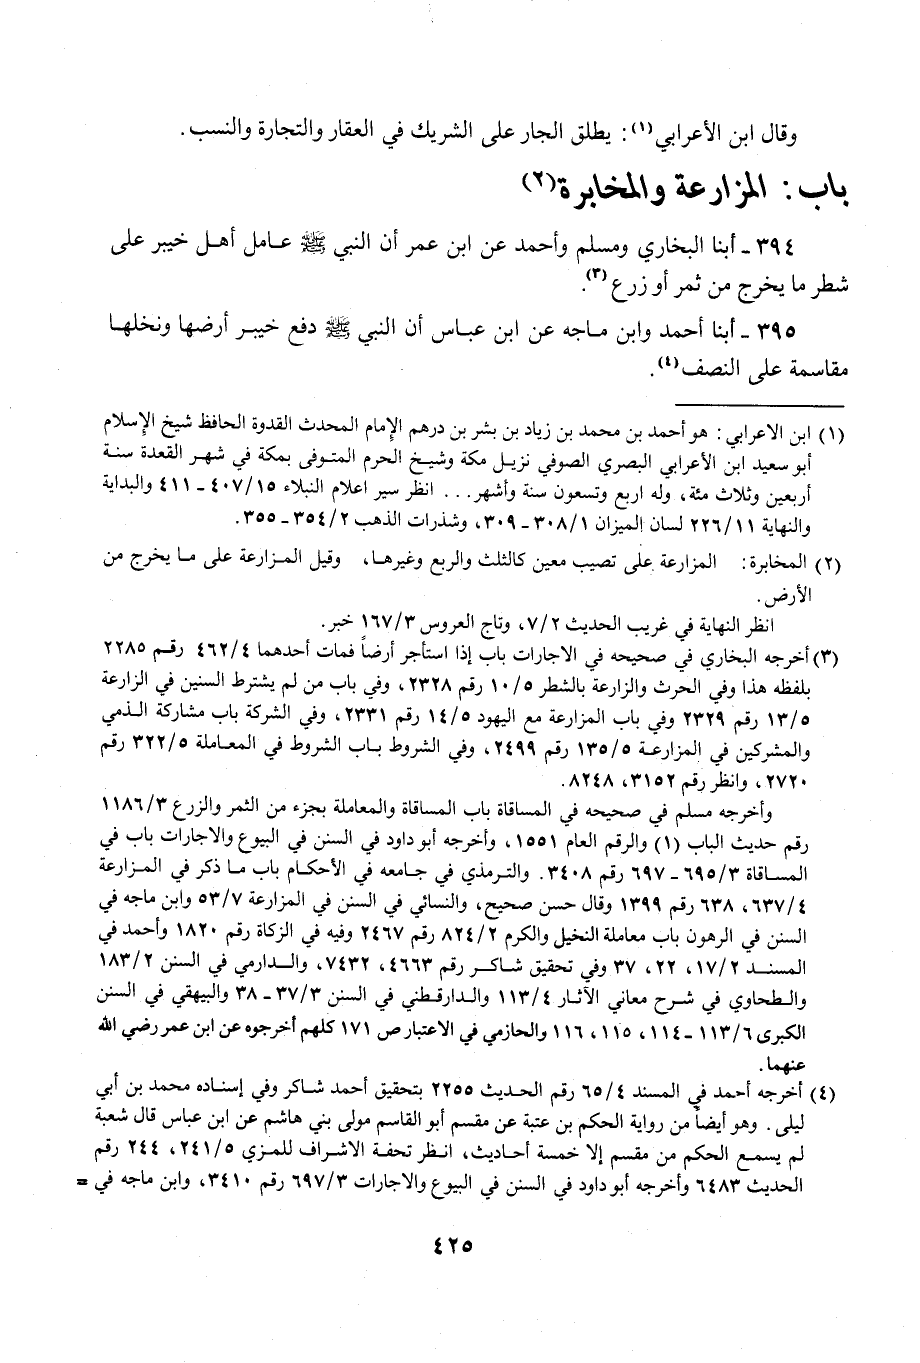 وقال ابن الأعرابي(١): يطلق الجار على الشريك في العقار والتجارة والنسب.
باب: المزارعة والمخابرة(٢)
٣٩٤ ـ أبنا البخاري ومسلم وأحمد عن ابن عمر أن النبي ﷺ عامل أهل خيبر على
شطر ما يخرج من ثمر أو زرع(٣).
٣٩٥ ـ أبنا أحمد وابن ماجه عن ابن عباس أن النبي ﷺ دفع خيبر أرضها ونخلها
مقاسمة على النصف(٤).
(١) ابن الاعرابي: هو أحمد بن محمد بن زياد بن بشر بن درهم الإمام المحدث القدوة الحافظ شيخ الإسلام
أبو سعيد ابن الأعرابي البصري الصوفي نزيل مكة وشيخ الحرم المتوفى بمكة في شهر القعدة سنة
أربعين وثلاث مئة، وله اربع وتسعون سنة وأشهر... انظر سير اعلام النبلاء ٤٠٧/١٥ ـ ٤١١ والبداية
والنهاية ٢٢٦/١١ لسان الميزان ٣٠٨/١ ـ ٣٠٩، وشذرات الذهب ٣٥٤/٢ ـ ٣٥٥.
(٢) المخابرة: المزارعة على نصيب معين كالثلث والربع وغيرها، وقيل المزارعة على ما يخرج من
الأرض.
انظر النهاية في غريب الحديث ٧/٢، وتاج العروس ١٦٧/٣ خبر.
(٣) أخرجه البخاري في صحيحه في الاجارات باب إذا استأجر أرضاً فمات أحدهما ٤٦٢/٤ رقم ٢٢٨٥
بلفظه هذا وفي الحرث والزارعة بالشطر ١٠/٥ رقم ٢٣٢٨، وفي باب من لم يشترط السنين في الزارعة
١٣/٥ رقم ٢٣٢٩ وفي باب المزارعة مع اليهود ١٤/٥ رقم ٢٣٣١، وفي الشركة باب مشاركة الذمي
والمشركين في المزارعة ١٣٥/٥ رقم ٢٤٩٩، وفي الشروط باب الشروط في المعاملة ٣٢٢/٥ رقم
٢٧٢٠، وانظر رقم ٣١٥٢، ٨٢٤٨.
وأخرجه مسلم في صحيحه في المساقاة باب المساقاة والمعاملة بجزء من الثمر والزرع ١١٨٦/٣
رقم حديث الباب (١) والرقم العام ١٥٥١، وأخرجه أبو داود في السنن في البيوع والاجارات باب في
المساقاة ٦٩٥/٣ ـ ٦٩٧ رقم ٣٤٠٨. والترمذي في جامعه في الأحكام باب ما ذكر في المزارعة
٦٣٧/٤، ٦٣٨ رقم ١٣٩٩ وقال حسن صحيح، والنسائي في السنن في المزارعة ٥٣/٧ وابن ماجه في
السنن في الرهون باب معاملة النخيل والكرم ٨٢٤/٢ رقم ٢٤٦٧ وفيه في الزكاة رقم ١٨٢٠ وأحمد في
المسند ١٧/٢، ٢٢، ٣٧ وفي تحقيق شاكر رقم ٤٦٦٣، ٧٤٣٢، والدارمي في السنن ١٨٣/٢
والطحاوي في شرح معاني الآثار ١١٣/٤ والدارقطني في السنن ٣٧/٣ ـ ٣٨ والبيهقي في السنن
الكبرى ١١٣/٦ ـ ١١٤، ١١٥، ١١٦ والحازمي في الاعتبار ص ١٧١ كلهم أخرجوه عن ابن عمر رضي الله
عنهما.
(٤) أخرجه أحمد في المسند ٦٥/٤ رقم الحديث ٢٢٥٥ بتحقيق أحمد شاكر وفي إسناده محمد بن أبي
ليلى. وهو أيضاً من رواية الحكم بن عتبة عن مقسم أبو القاسم مولى بني هاشم عن ابن عباس قال شعبة
لم يسمع الحكم من مقسم إلا خمسة أحاديث، انظر تحفة الاشراف للمزي ٢٤١/٥، ٢٤٤ رقم
الحديث ٦٤٨٣ وأخرجه أبو داود في السنن في البيوع والاجارات ٦٩٧/٣ رقم ٣٤١٠، وابن ماجه في =
٤٢٥